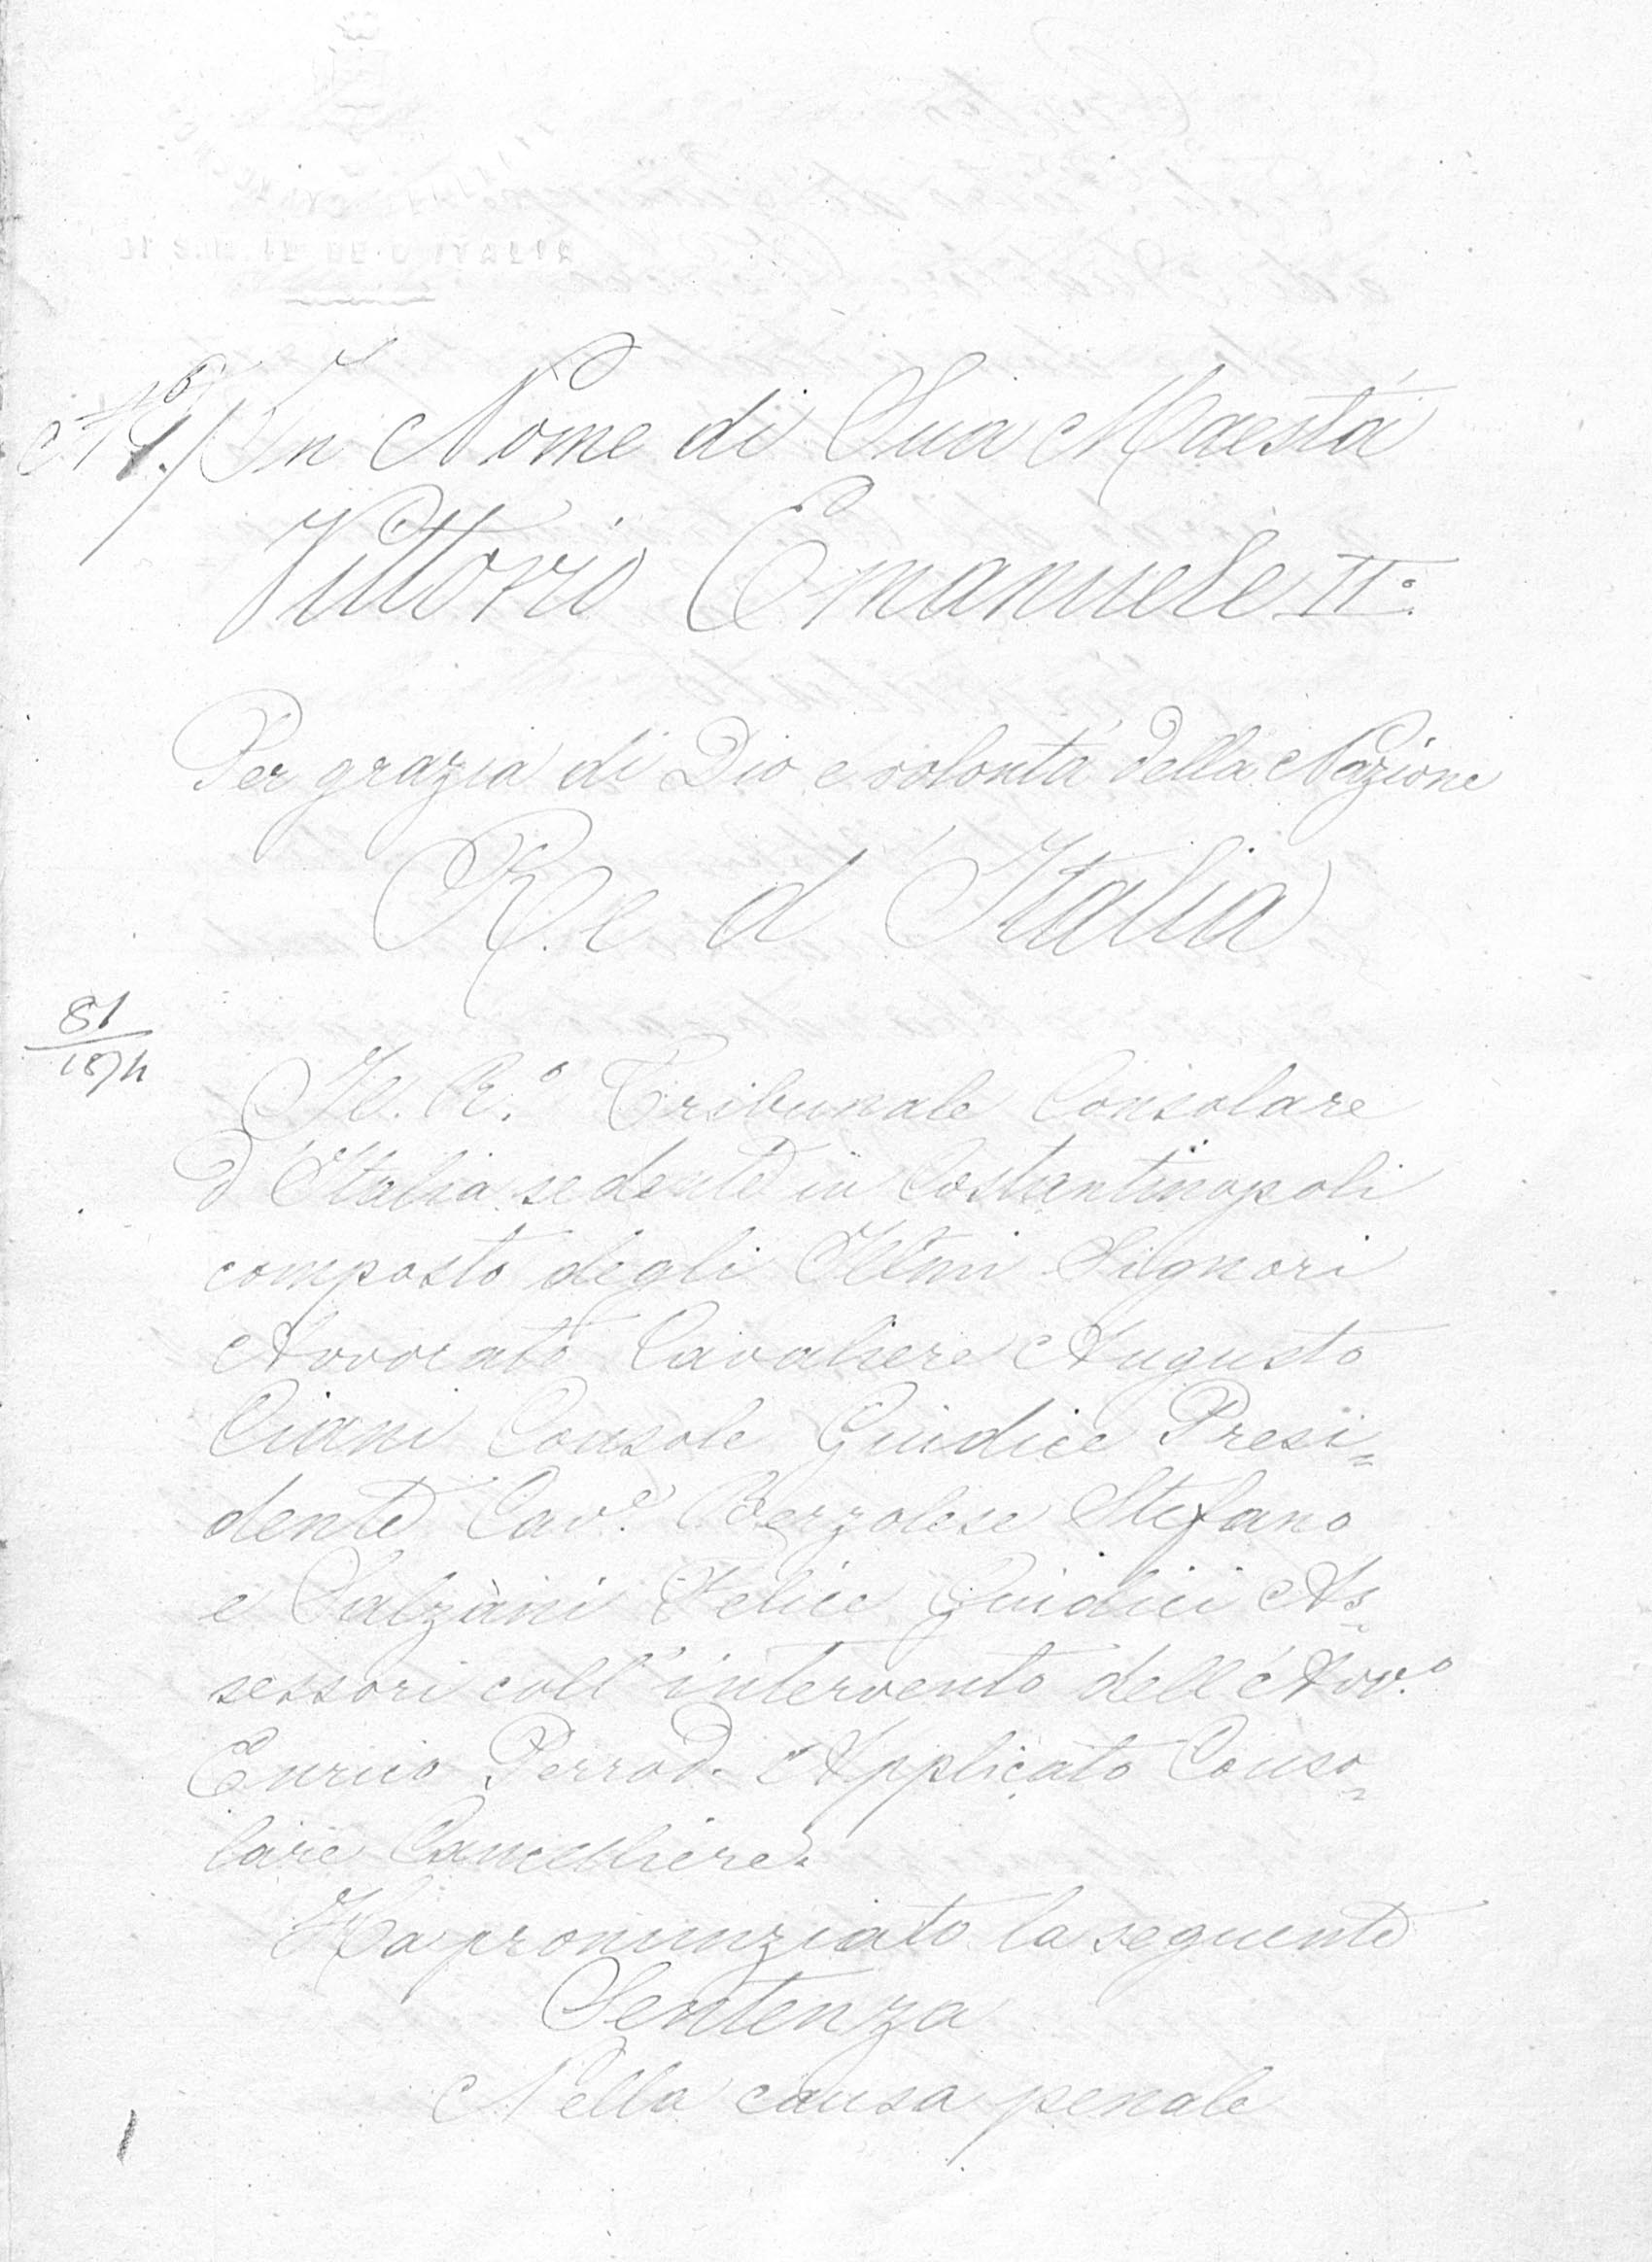 N.º 1. In Nome di Sua Maestà
Vittorio Emanuele II.º
Per grazia di Dio e volontà della Nazione
Re d'Italia
81
1874
Il R.º Tribunale Consolare
d'Italia sedente in Costantinopoli
composto degli Illmi Signori
Avvocato Cavaliere Augusto
Ciani Console Giudice Presi=
dente Cav.e Berzolese Stefano
e Salzàni Felice Giudici As=
sessori coll'intervento dell'Avv.º
Enrico Perrod. Applicato Conso=
lare Cancelliere.
Ha pronunziato la seguente
Sentenza
Nella causa penale
1